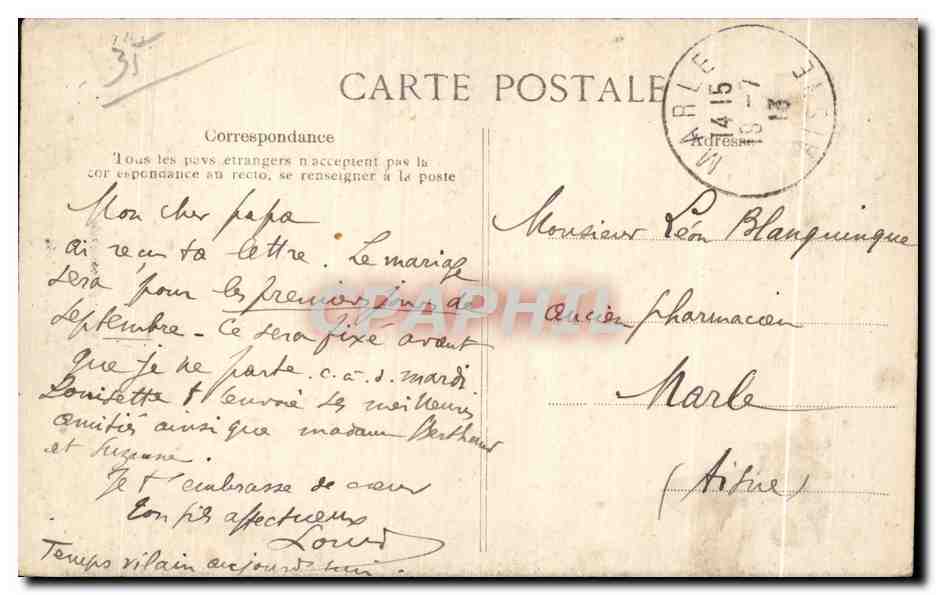 35
CARTE POSTALE
MARLE
AISNE
14 15
18 - 7
13
Correspondance
Tous les pays étrangers n'acceptent pas la
correspondance au recto, se renseigner à la poste
Mon cher papa
ai reçu ta lettre. Le mariage
sera pour les premiers jours de
septembre - ce sera fixé avant
que je ne parte. c.à.d. mardi
Louisette t'envoie ses meilleures
amitiés ainsi que madame Berthaud
et Suzanne.
Je t'embrasse de coeur
ton fils affectueux
Louis
Temps vilain aujourd'hui.
Adresse
Monsieur Léon Blanquinque
ancien pharmacien
Marle
(Aisne)
CPAPHIL